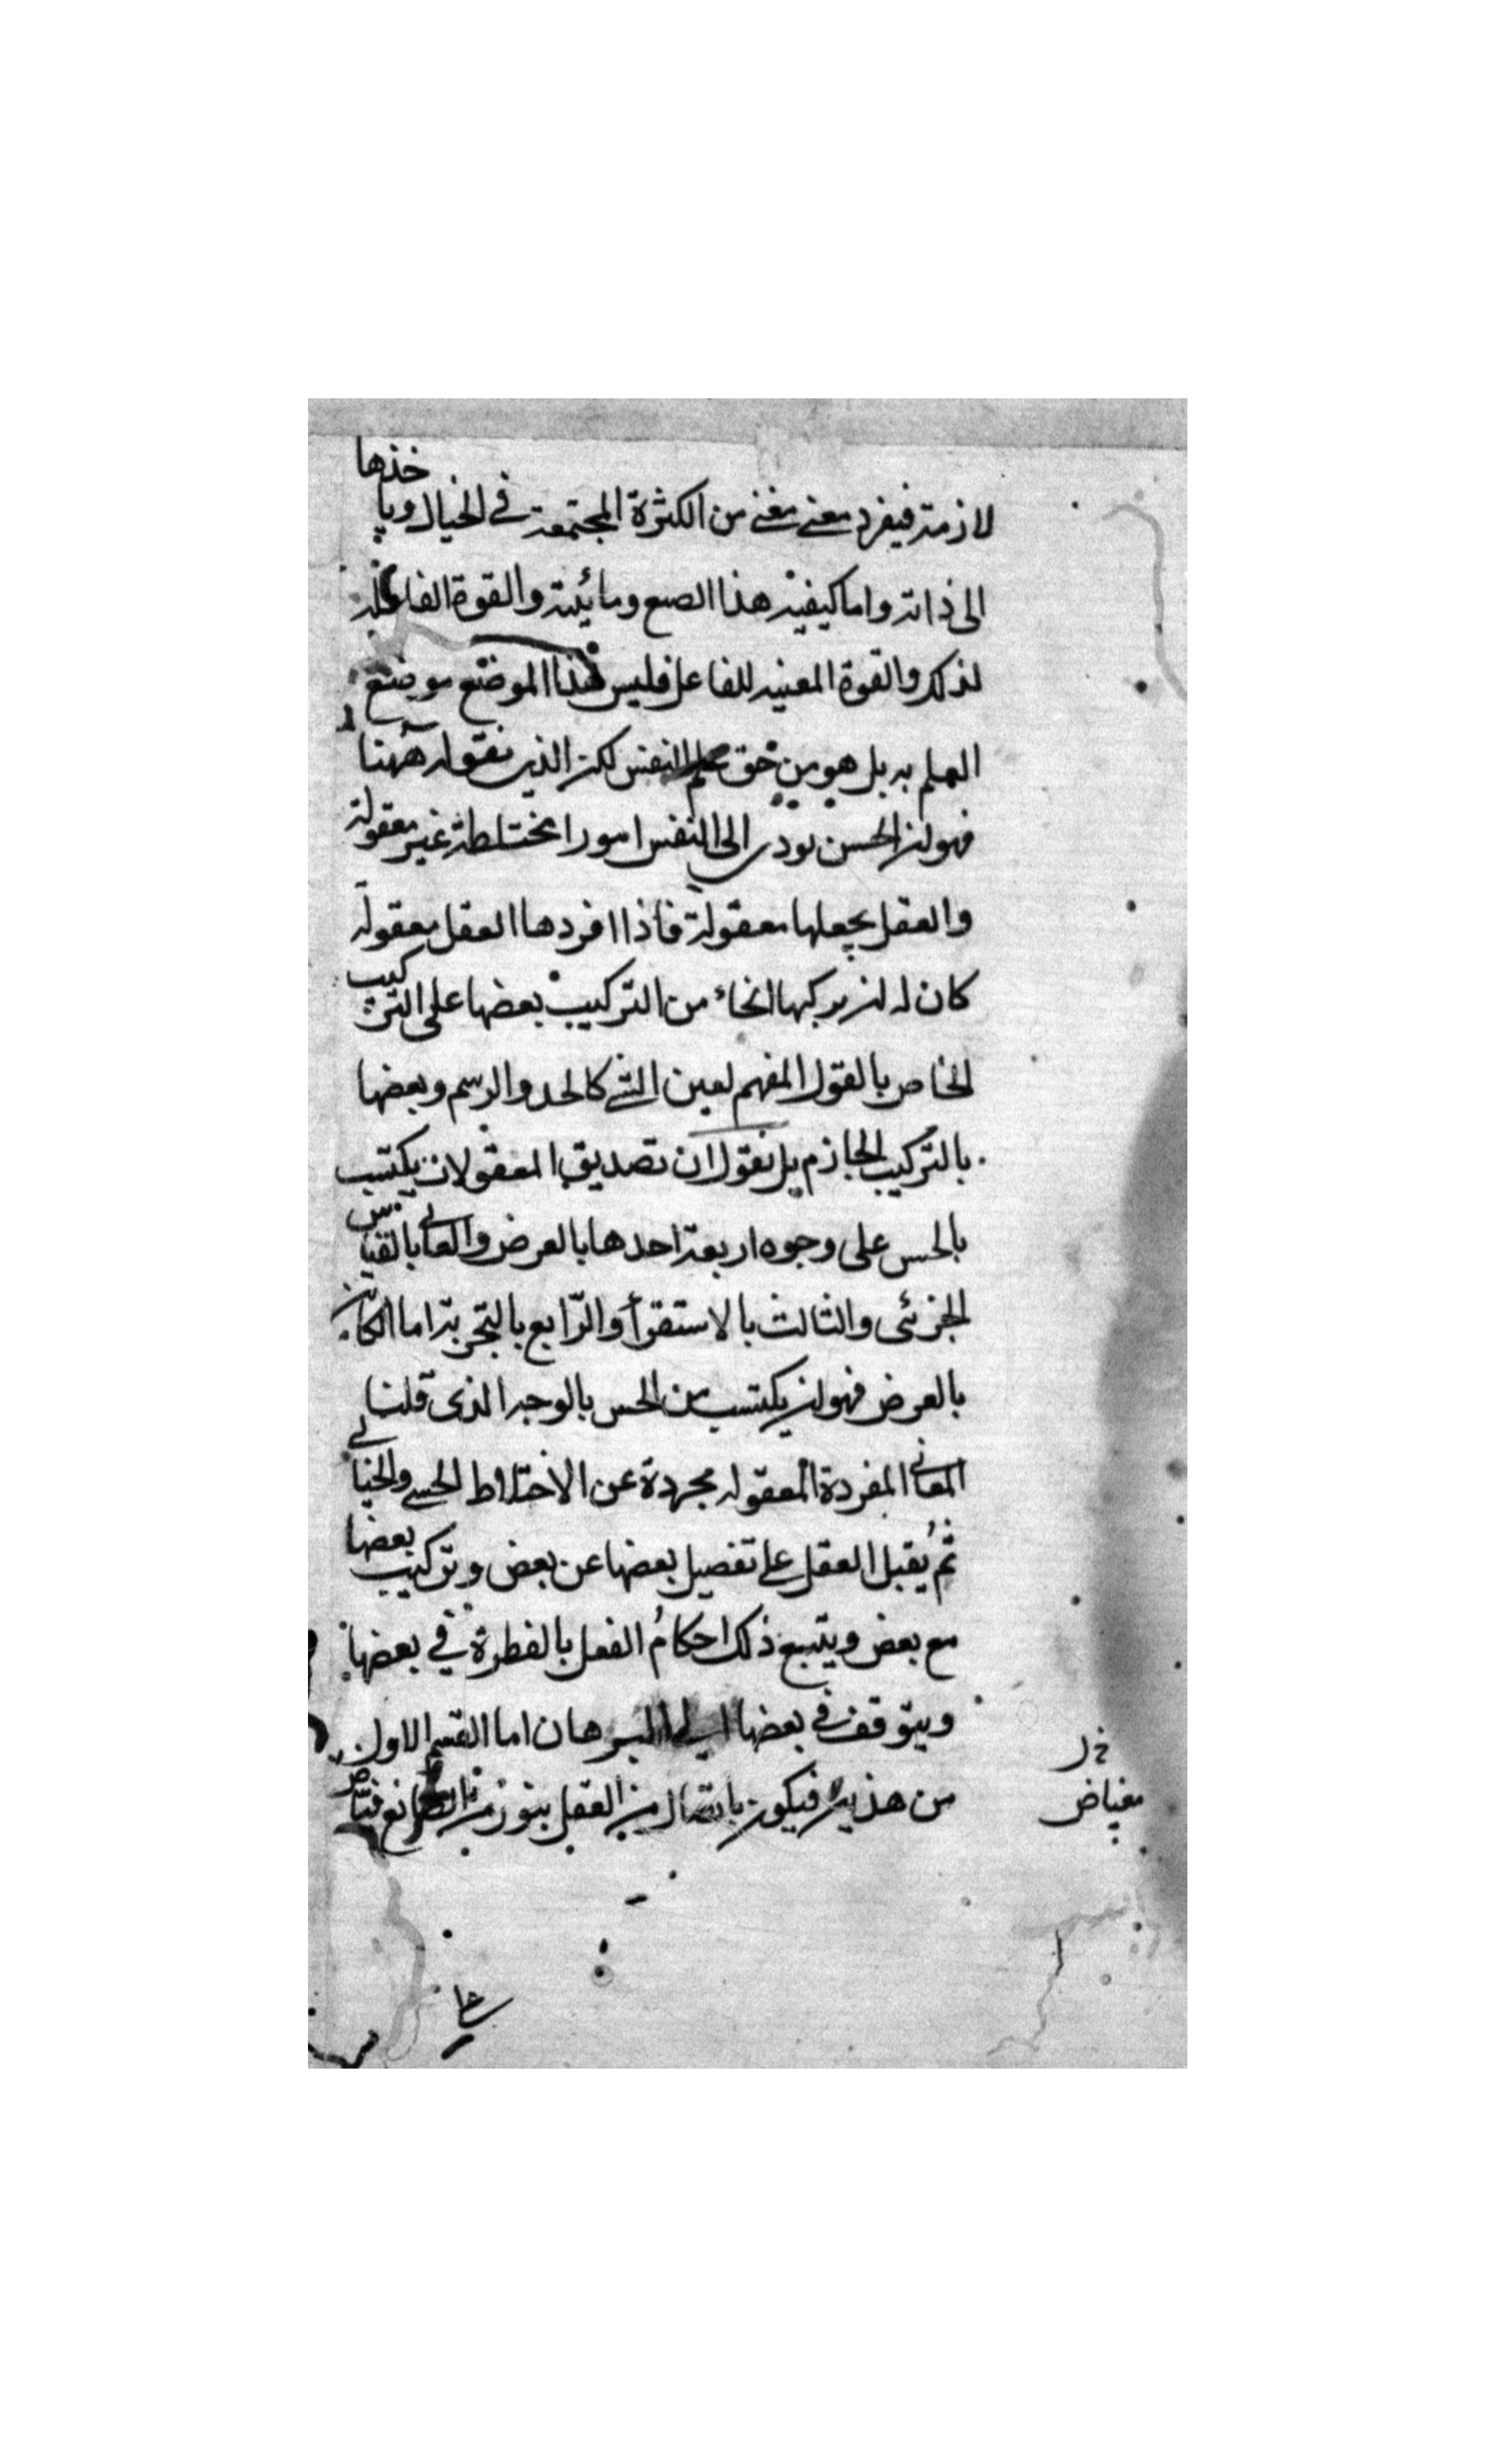 لازمة فيفرد معنى معنى من الكثرة المجتمعة في الخيال وياخذها
الى ذاته واما كيفية هذا الصنع ومائيته والقوة الفاعلة
لذلك والقوة المعينه للفاعل فليس هذا الموضع موضع
العلم به بل هو من حق علم النفس لكن الذي نقوله ههنا
فهو ان الحس يودى الى النفس امورا مختلطة غير معقولة
والعقل يجعلها معقولة فاذا افردها العقل معقولة
كان له ان يركبها انحاء من التركيب بعضها على التركيب
الخاص بالقول المفهم لعين الشي كالحد والرسم وبعضها
بالتركيب الجازم بل نقول ان تصديق المعقولات يكتسب
بالحس على وجوه اربعة احدها بالعرض والثاني بالقياس
الجزئى والثالث بالاستقرأ والرّابع بالتجربة اما الكائن
بالعرض فهو ان يكتسب من الحس بالوجه الذى قلنا
المعاني المفردة المعقوله مجردة عن الاختلاط الحسي والخيالي
ثم يُقبل العقل على تفصيل بعضها عن بعض وتركيب بعضها
مع بعض ويتبع ذلك احكامُ العقل بالفطرة في بعضها
ويتوقف في بعضها الى البرهان اما القسم الاول
من هذين فيكون باتصال من العقل بنور من الصانع فياض
مفياض